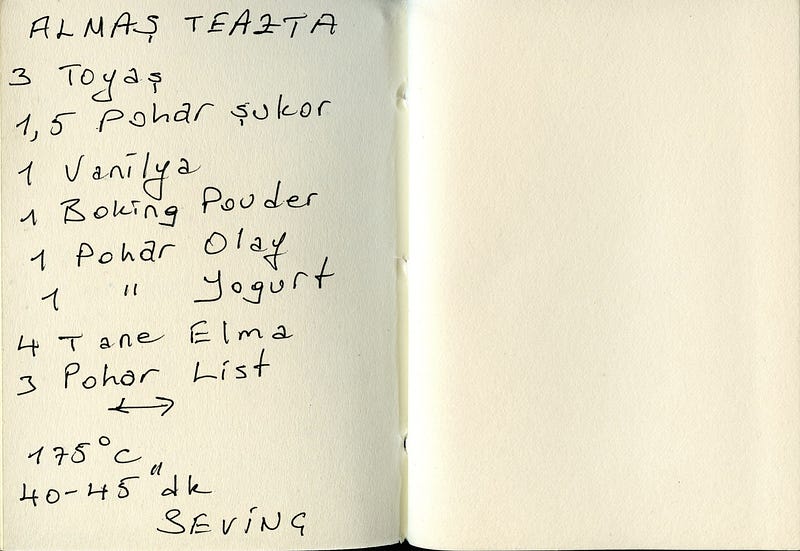 ALMAŞ TEAZTA
3 Toyaş
1,5 Pohar şukor
1 Vanilya
1 Boking Pouder
1 Pohar Olay
1 " Yogurt
4 Tane Elma
3 Pohar List
↔
175°C
40-45 " dk
SEVİNÇ